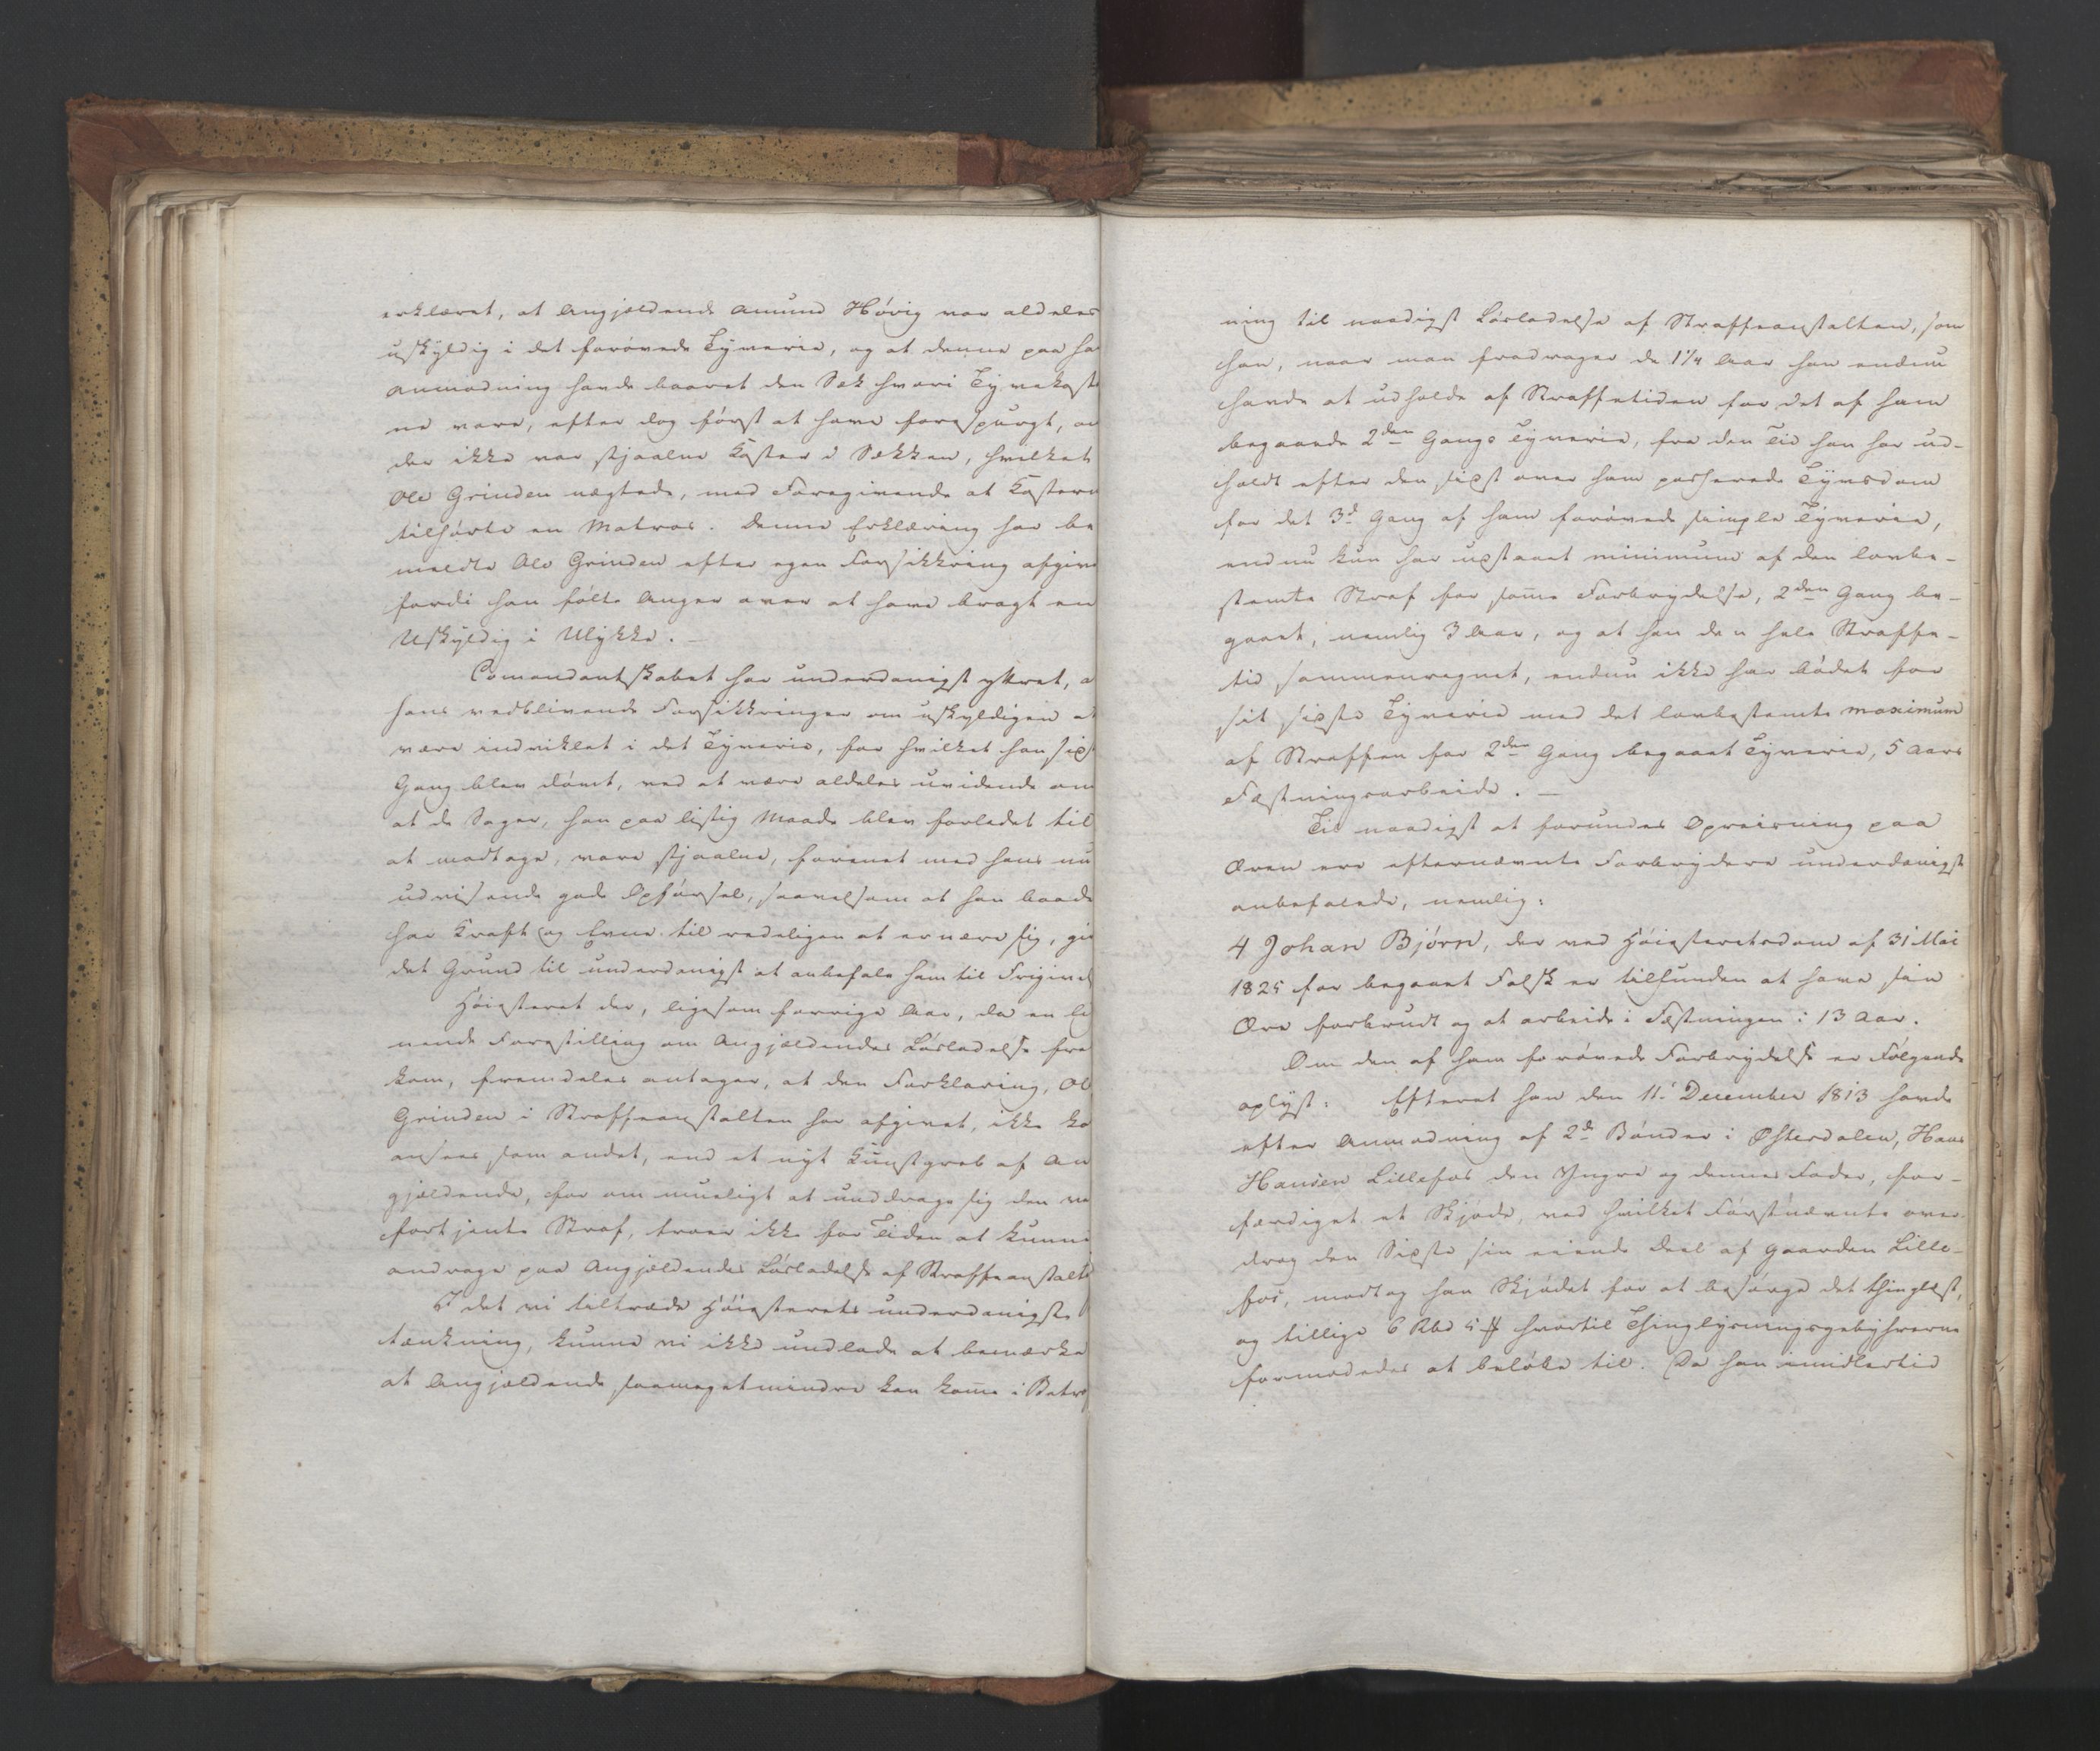 erklæret, at Angjældende Amund Hövig var aldeles
uskyldig i det forövede Tyverie, og at denne paa ha
anmodning havde baaret den Sæk hvori Tyvekoste
ne vare, efter dog först at have forespurgt, om
der ikke var stjaalne Koster i Sækken, hvilket
Ole Grinden nægtede, med Foregivende at Kostern
tilhörte en Matros. Denne Erklæring har be
meldte Ole Grinden efter egen Forsikkring afgive
fordi han fölte Anger over at have bragt en
Uskyldig i Ulykke. —
Comandantskabet har underdanigst yttret, a
hans vedblivende Forsikkringer om uskyldigen at
være indviklet i det Tyverie, for hvilket han sids
Gang blev dömt, ved at være aldeles uvidende om
at de Sager, han paa listig Maade blev forledet til
at modtage, vare stjaalne, forenet med hans nu
udvisende gode Opförsel, saavelsom at han baade
har Kraft og Evne til redeligen at ernære sig, giv
det Grund til underdanigst at anbefale ham til Frigivel
Höiesteret der, ligesom forrige Aar, da en lig
nende Forestilling om Angjældendes Lösladelse frem
kom, fremdeles antager, at den Forklaring, Ol
Grinden i Straffeanstalten har afgivet, ikke ka
ansees som andet, end et nyt Kunstgreb af An
gjældende, for om mueligt at unddrage sig den ve
fortjente Straf, troer ikke for Tiden at kunne
andrage paa Angjældendes Lösladelse af Straffeanstalte
I det vi tiltræde Höiesterets underdanigste
tænkning, kunne vi ikke undlade at bemærke
at Angjældende saameget mindre kan kome i Betrag
ning til naadigst Lösladelse af Straffeanstalten, som
han, naar man fradrager de 1 1/4 Aar han endnu
havde at udholde af Straffetiden for det af ham
begaaede 2den Gangs Tyverie, fra den Tid han har ud-
holdt efter den sidst over ham passerede Tyvsdom
for det 3d Gang af ham forövede simple Tyverie,
endnu kun har udstaaet minimum af den lovbe-
stemte Straf for same Forbrydelse, 2den Gang be-
gaaet, nemlig 3 Aar, og at han den hele Straffe-
tid sammenregnet, endnu ikke har bödet for
sit sidste Tyverie med det lovbestemte maximum
af Straffen for 2den Gang begaaet Tyverie, 5 Aars
Fæstningsarbeide. —
Til naadigst at forundes Opreisning paa
Æren ere efternævnte Forbrydere underdanigst
anbefalede, nemlig:
4 Johan Björn, der ved Höiesteretsdom af 31 Mai
1825 for begaaet Falsk er tilfunden at have sin
Ære forbrudt og at arbeide i Fæstningen i 13 Aar.
Om den af ham forövede Forbrydelse er Fölgende
oplyst: Efteret han den 11. December 1813 havde
efter Anmodning af 2de Bönder i Østerdalen, Hans
Hansen Lillefos den Yngre og dennes Fader, for-
færdiget et Skjöde, ved hvilket Förstnævnte over
drog den Sidste sin eiende Deel af Gaarden Lille-
fos, modtog han Skjödet for at besörge det thinglæst,
og tillige 6 Rbd 5 ß hvortil Thinglysningsgebyhrerne
formodedes at belöbe til. Da han imidlertid